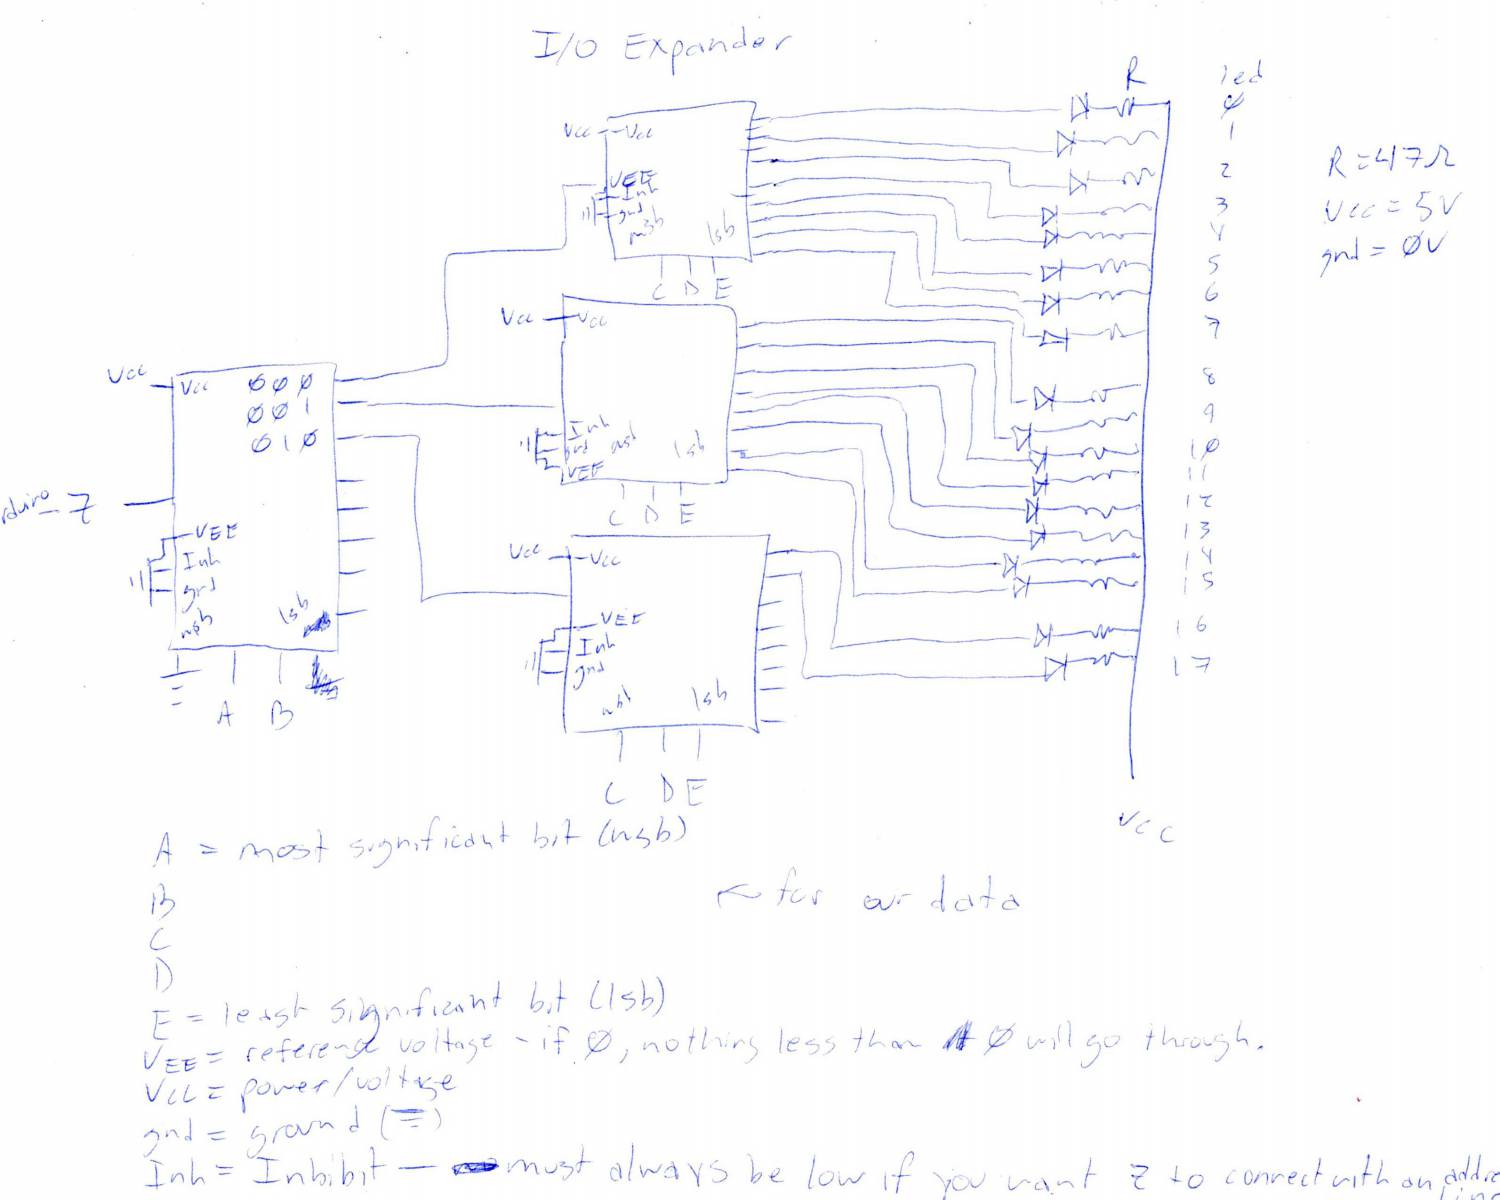 I/O Expander
R led
Ø
1
2
3
4
5
6
7
8
9
10
11
12
13
14
15
16
17
R = 47Ω
Vcc = 5V
gnd = ØV
Vcc Vcc
VEE
Inh
gnd
msb lsb
C D E
Vcc Vcc
Inh
gnd msb lsb
VEE
C D E
Vcc Vcc ØØØ
ØØ1
Ø1Ø
rduino - Z
VEE
Inh
gnd
msb lsb
A B
Vcc Vcc
VEE
Inh
gnd
msb lsb
C D E
Vcc
A = most significant bit (msb)
B
← for our data
C
D
E = least significant bit (lsb)
VEE = reference voltage - if Ø, nothing less than Ø will go through.
Vcc = power/voltage
gnd = ground (
Inh = Inhibit — must always be low if you want Z to connect with an addre